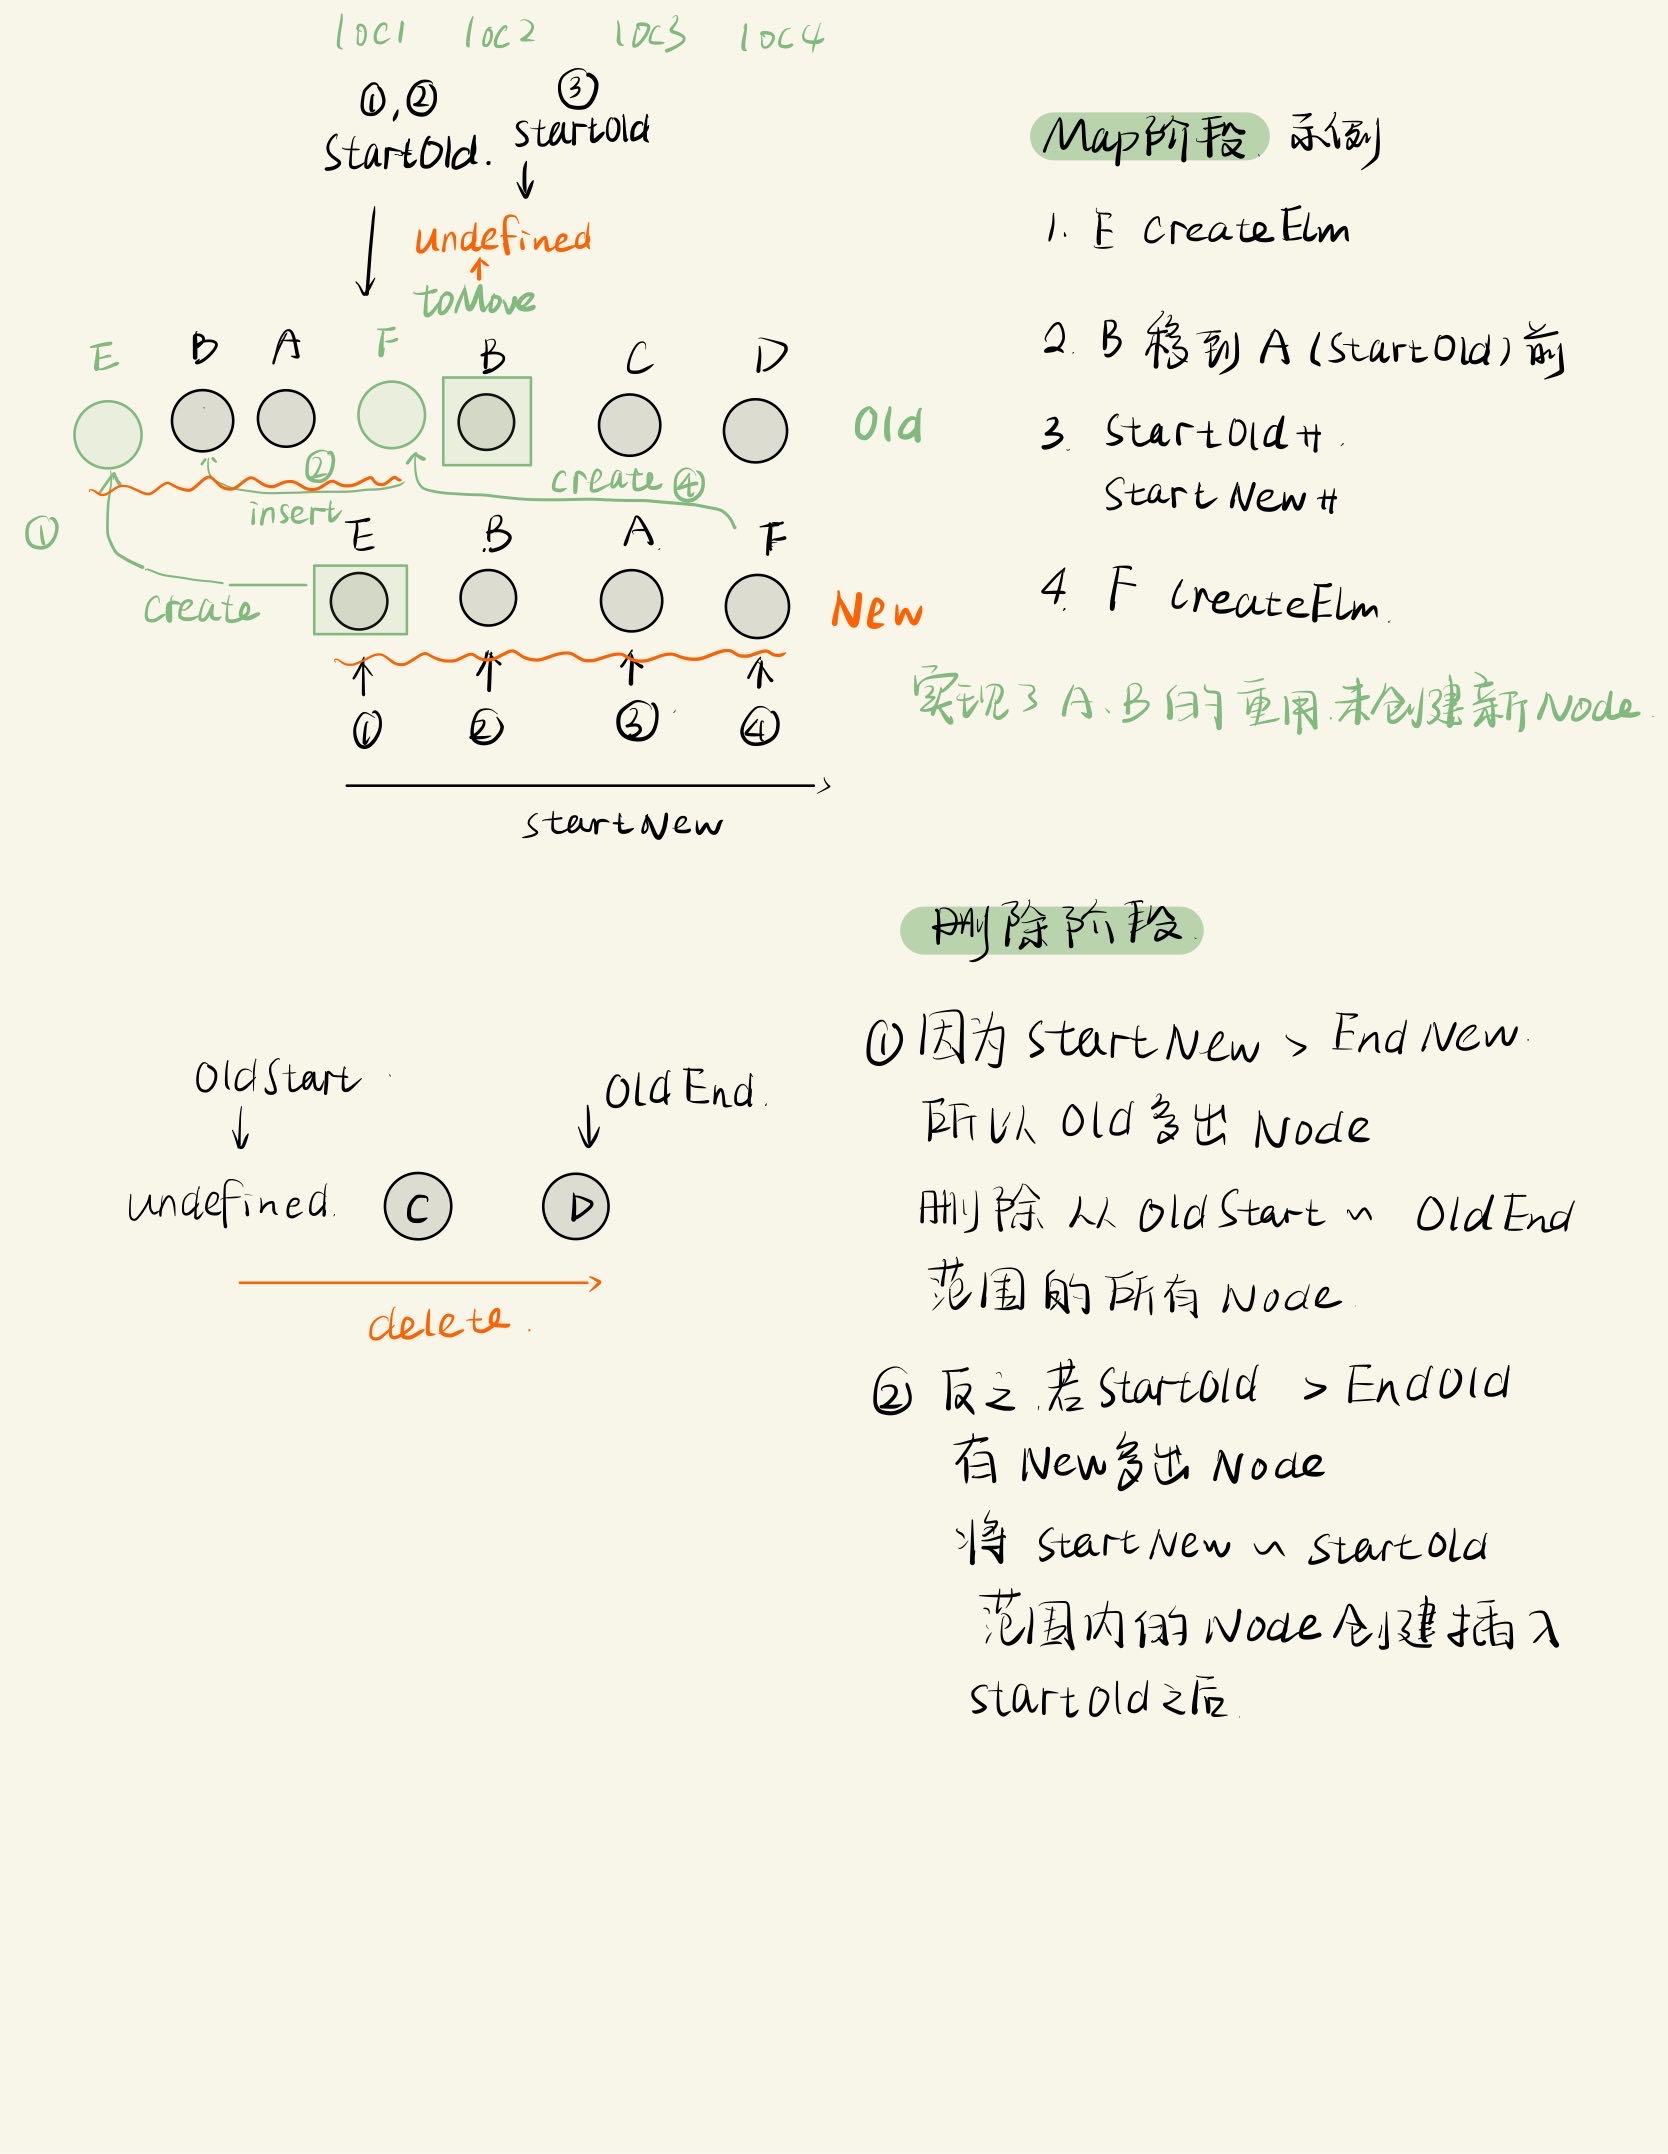 loc1 loc2 loc3 loc4
①,② ③
StartOld. startOld
undefined
toMove
E B A F B C D
Old
② create ④
insert
①
E B A F
create
New
① ② ③ ④
startNew
Map阶段 示例
1. E CreateElm
2. B 移到 A (StartOld) 前
3. StartOld++.
StartNew++
4. F CreateElm.
实现了 A、B 的重用.未创建新Node.
删除阶段
OldStart
OldEnd.
undefined. C D
delete.
① 因为 StartNew > EndNew.
所以 Old 多出 Node
删除从 OldStart ~ OldEnd
范围的所有 Node.
② 反之.若StartOld > EndOld
有 New多出 Node
将 startNew ~ startOld
范围内的 Node创建插入
startOld之后.